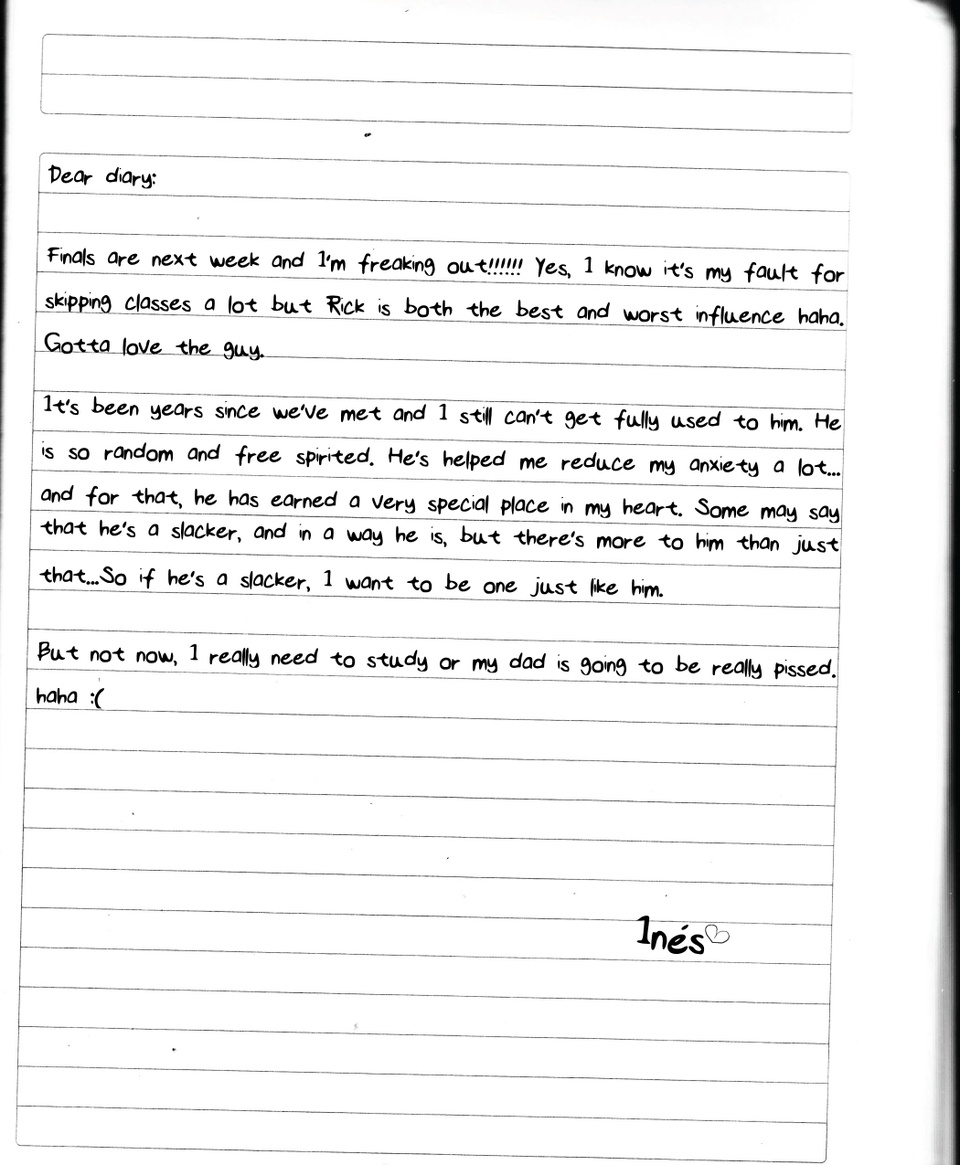 Dear diary:
Finals are next week and I'm freaking out!!!!!! Yes, I know it's my fault for
skipping classes a lot but Rick is both the best and worst influence haha.
Gotta love the guy.
It's been years since we've met and I still can't get fully used to him. He
is so random and free spirited. He's helped me reduce my anxiety a lot...
and for that, he has earned a very special place in my heart. Some may say
that he's a slacker, and in a way he is, but there's more to him than just
that...So if he's a slacker, I want to be one just like him.
But not now, I really need to study or my dad is going to be really pissed.
haha :(
Inés♡